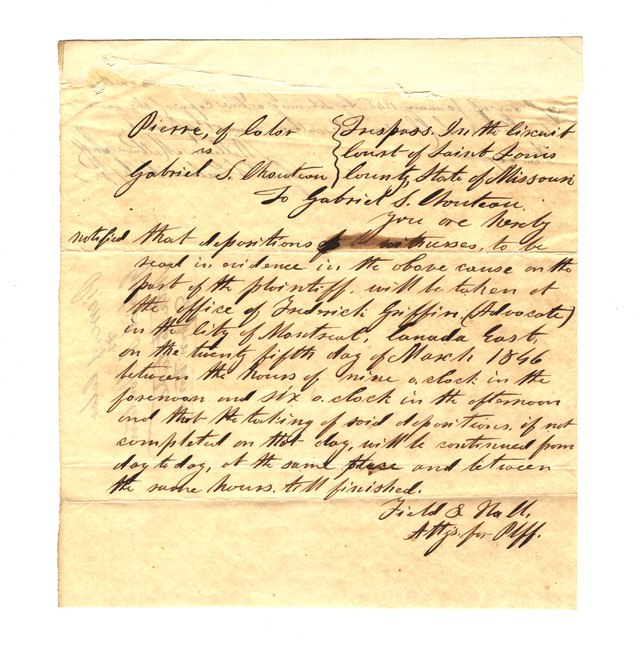 Pierre, of Color } Trespass. In the Circuit
vs } Court of Saint Louis
Gabriel S. Chouteau } County, State of Missouri
To Gabriel S. Chouteau.
You are hereby
notified that depositions of witnesses, to be
read in evidence in the above cause on the
part of the plaintiff. will be taken at
the office of Fredrick Griffin, (Advocate)
in the City of Montreal, Canada East,
on the twenty fifth day of March 1846
between the hours of nine o,clock in the
forenoon and six o,clock in the afternoon
and that the taking of said depositions. if not
completed on that day, will be continued from
day to day, at the same place and between
the same hours. till finished.
Field & Hall.
Attys. for Plff.